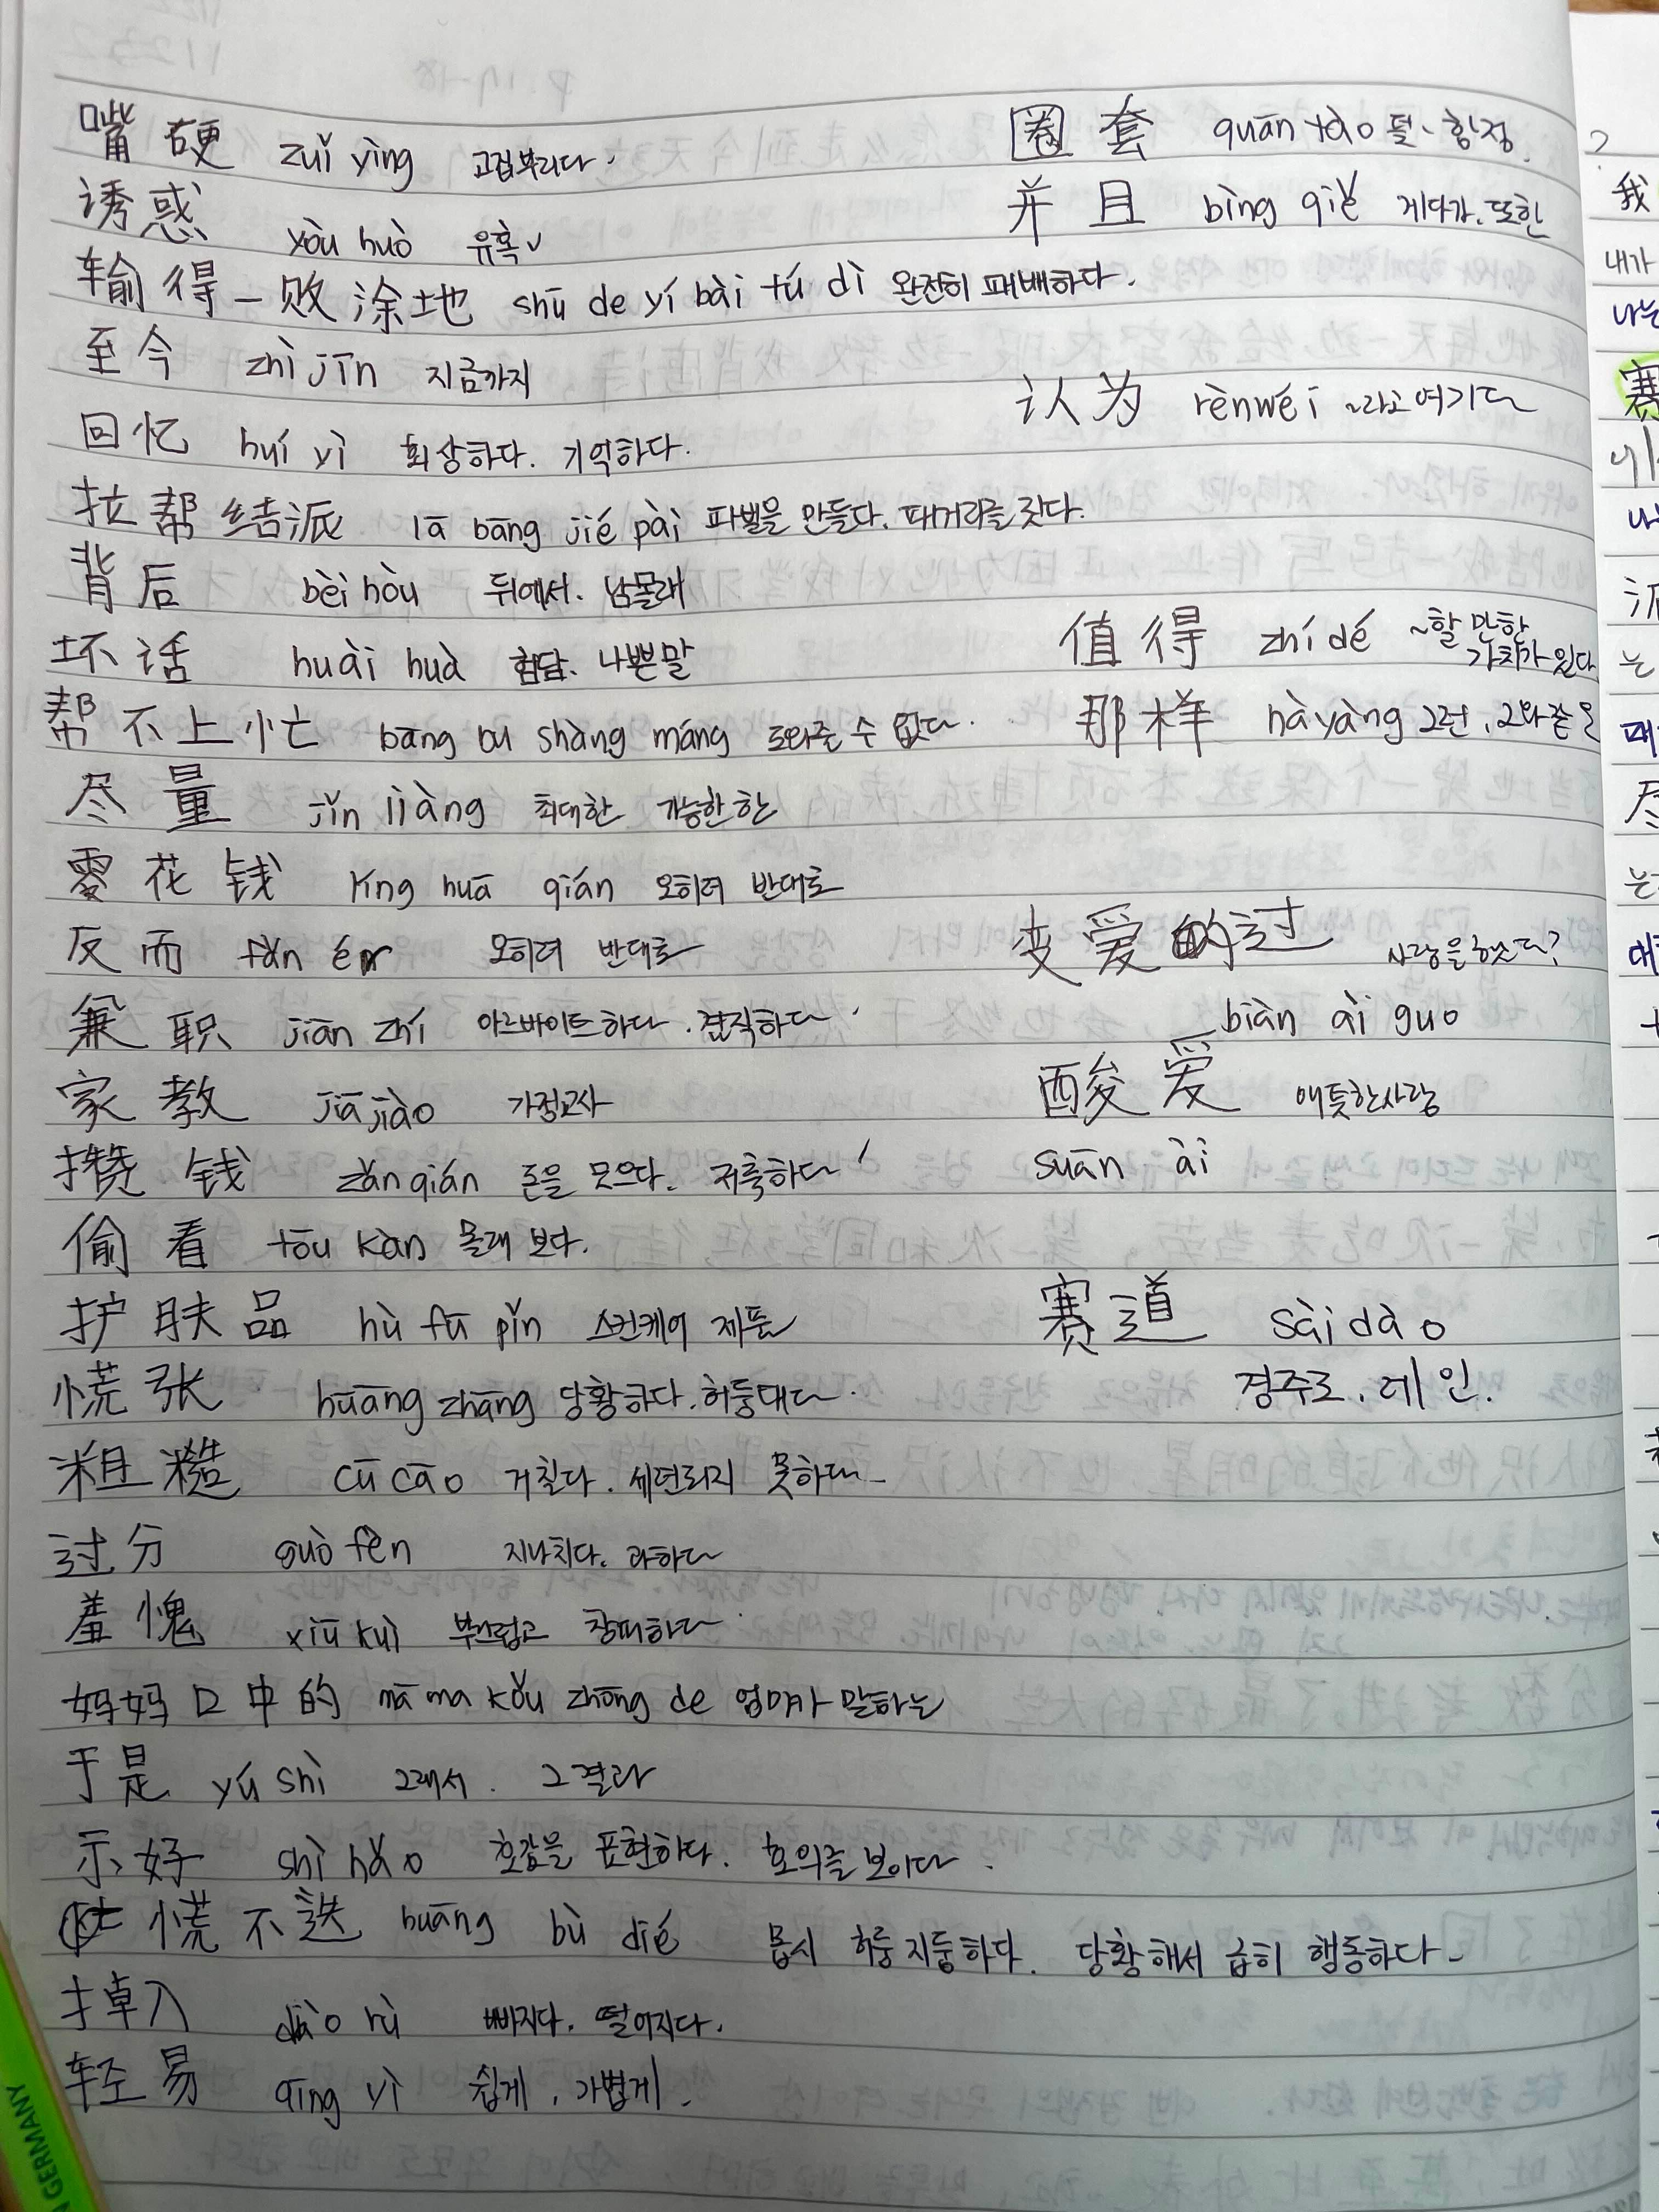 嘴硬 zuǐ yìng 고집부리다.
诱惑 yòu huò 유혹
输得一败涂地 shū de yí bài tú dì 완전히 패배하다.
至今 zhì jīn 지금까지
回忆 huí yì 회상하다. 기억하다.
拉帮结派 lā bāng jié pài 파벌을 만들다. 패거리를 짓다.
背后 bèi hòu 뒤에서. 남몰래
坏话 huài huà 험담. 나쁜말
帮不上忙 bāng bu shàng máng 도와줄 수 없다.
尽量 jǐn liàng 최대한 가능한 한
零花钱 líng huā qián 오히려 반대로
反而 fǎn ér 오히려 반대로
兼职 jiān zhí 아르바이트하다. 겸직하다
家教 jiā jiào 가정교사
攒钱 zǎn qián 돈을 모으다. 저축하다
偷看 tōu kàn 몰래 보다.
护肤品 hù fū pǐn 스킨케어 제품
慌张 huāng zhāng 당황하다. 허둥대다
粗糙 cū cāo 거칠다. 세련되지 못하다
过分 guò fèn 지나치다. 과하다
羞愧 xiū kuì 부끄럽고 창피하다
妈妈口中的 mā ma kǒu zhōng de 엄마가 말하는
于是 yú shì 그래서. 그결과
示好 shì hǎo 호감을 표현하다. 호의를 보이다.
慌不迭 huāng bù dié 몹시 허둥지둥하다. 당황해서 급히 행동하다
掉入 diào rù 빠지다. 떨어지다.
轻易 qīng yì 쉽게, 가볍게
圈套 quān tào 덫、함정.
并且 bìng qiě 게다가. 또한
认为 rènwéi ~라고 여기다
值得 zhí dé ~할 만한
가치가 있다
那样 nà yàng 그런, 그와 같은
变爱过 사랑을 했다?
biàn ài guo
酸爱 애틋한사랑
suān ài
赛道 sài dào
경주로, 레인.
GERMANY
我
内가
나는
赛